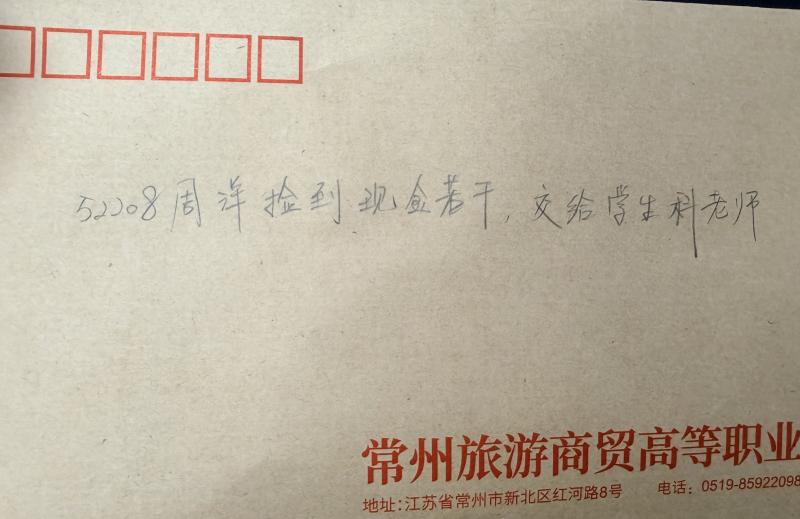 52208周洋捡到现金若干，交给学生科老师
常州旅游商贸高等职业
地址：江苏省常州市新北区红河路8号 电话：0519-85922098